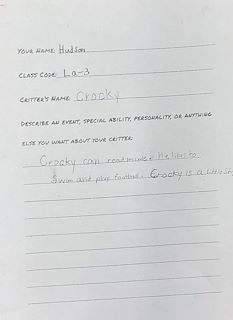 YOUR NAME: Hudson
CLASS CODE: La-3
CRITTER'S NAME: Crooky
DESCRIBE AN EVENT, SPECIAL ABILITY, PERSONALITY, OR ANYTHING
ELSE YOU WANT ABOUT YOUR CRITTER:
Crooky can read minds. He likes to
Swim and play football. Crooky is a little shy